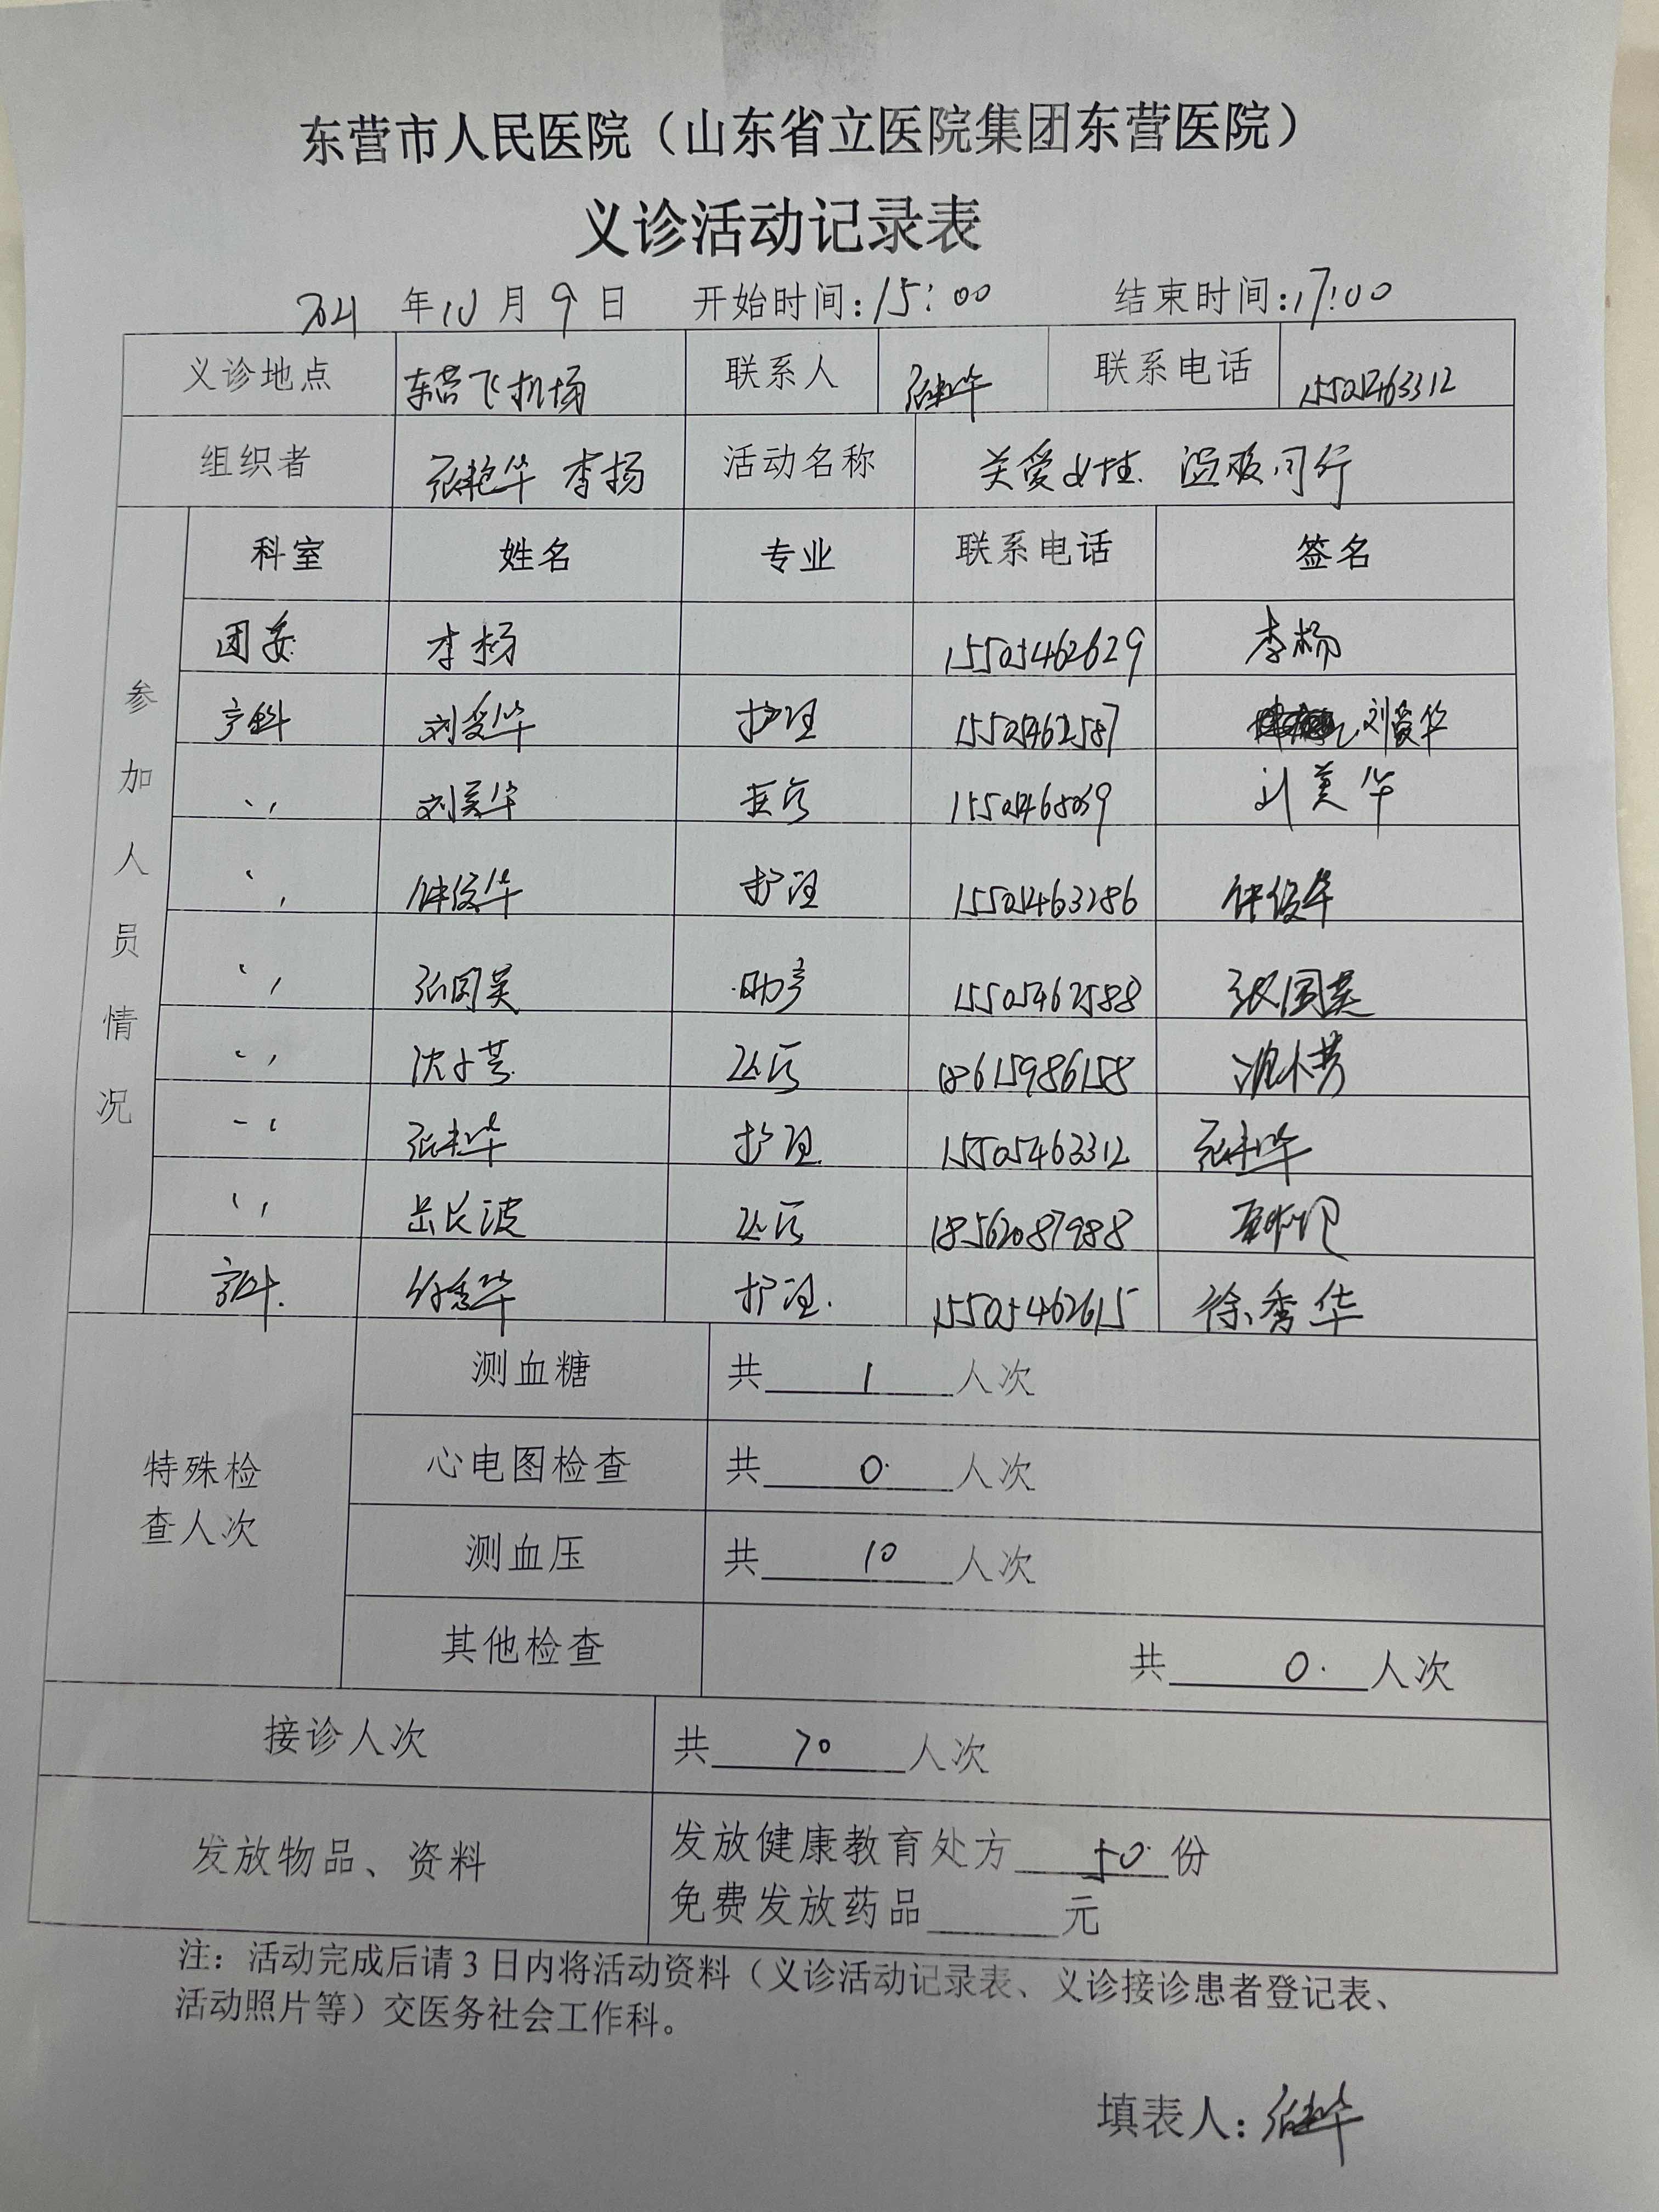 东营市人民医院（山东省立医院集团东营医院）
义诊活动记录表
年10月9日 开始时间：15:00 结束时间：17:00
义诊地点 东营飞机场 联系人 张艳华 联系电话 15505463312
组织者 张艳华 李杨 活动名称 关爱女性 温暖同行
参加人员情况
科室 姓名 专业 联系电话 签名
团委 李杨 15505462629 李杨
产科 刘爱华 护理 15505462587 刘爱华
〃 刘美华 医疗 刘美华
〃 护理 15505463286
〃 张国英 助产 15505462588 张国英
〃 医疗 18615986158
〃 张艳华 护理 15505463312 张艳华
〃 岳长波 医疗 18562087988
徐秀华 护理 15505462615 徐秀华
特殊检查人次
测血糖 共 1 人次
心电图检查 共 0 人次
测血压 共 10 人次
其他检查 共 0 人次
接诊人次 共 70 人次
发放物品、资料
发放健康教育处方 50 份
免费发放药品 元
注：活动完成后请3日内将活动资料（义诊活动记录表、义诊接诊患者登记表、
活动照片等）交医务社会工作科。
填表人：张艳华